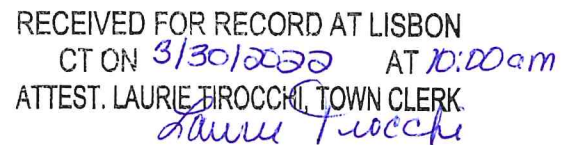 RECEIVED FOR RECORD AT LISBON
CT ON 3/30/2022 AT 10:00am
ATTEST. LAURIE TIROCCHI, TOWN CLERK
Laurie Tirocchi